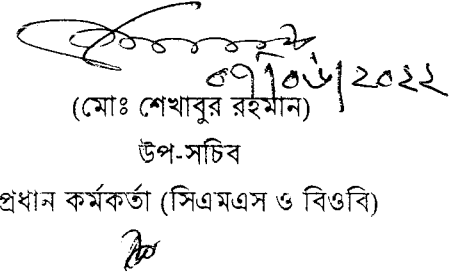 ০৭/০৬/২০২২
(মোঃ শেখাবুর রহমান)
উপ-সচিব
প্রধান কর্মকর্তা (সিএমএস ও বিওবি)